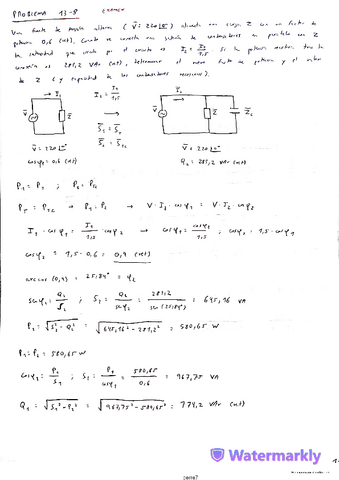 PROBLEMA 13-8 EXAMEN
Una fuente de tensión alterna (V̄ = 220∠0°) alimenta una carga Z con un factor de
potencia 0,6 (ind). Cuando se conecta una batería de condensadores en paralelo con Z
la intensidad que cede por el circuito es I₂ = I₁/1,5. Si la potencia reactiva tras la
conexión es 281,2 VAr (ind), determinar el nuevo factor de potencia y el valor
de Z (y capacidad de los condensadores necesarios).
I₂ = I₁/1,5
V̄ Z̄ V̄ Z̄ Z̄c
V̄ = 220∠0° V̄ = 220∠0°
cosφ₁ = 0,6 (ind) Q₂ = 281,2 VAr (ind)
P₁ = P₂ ;
V·I₁·cosφ₁ = V·I₂·cosφ₂
I₁·cosφ₁ = I₁/1,5 · cosφ₂ → cosφ₁ = cosφ₂/1,5 ; cosφ₂ = 1,5·cosφ₁
cosφ₂ = 1,5·0,6 = 0,9 (ind)
arccos (0,9) = 25,84° = φ₂
senφ₂ = Q₂/S₂ ; S₂ = Q₂/senφ₂ = 281,2/sen(25,84°) = 645,16 VA
P₂ = √(S₂² - Q₂²) = √(645,16² - 281,2²) = 580,65 W
P₁ = P₂ = 580,65 W
cosφ₁ = P₁/S₁ ; S₁ = P₁/cosφ₁ = 580,65/0,6 = 967,75 VA
Q₁ = √(S₁² - P₁²) = √(967,75² - 580,65²) = 774,2 VAr (ind)
Watermarkly